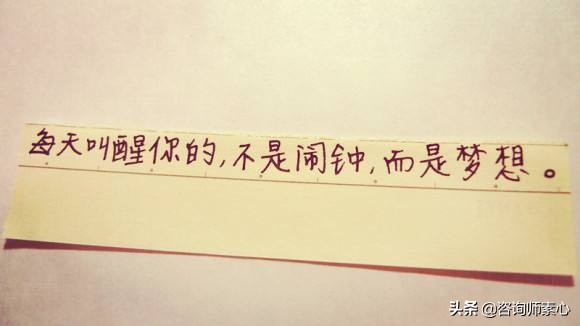 每天叫醒你的,不是闹钟,而是梦想。
头条 @咨询师素心